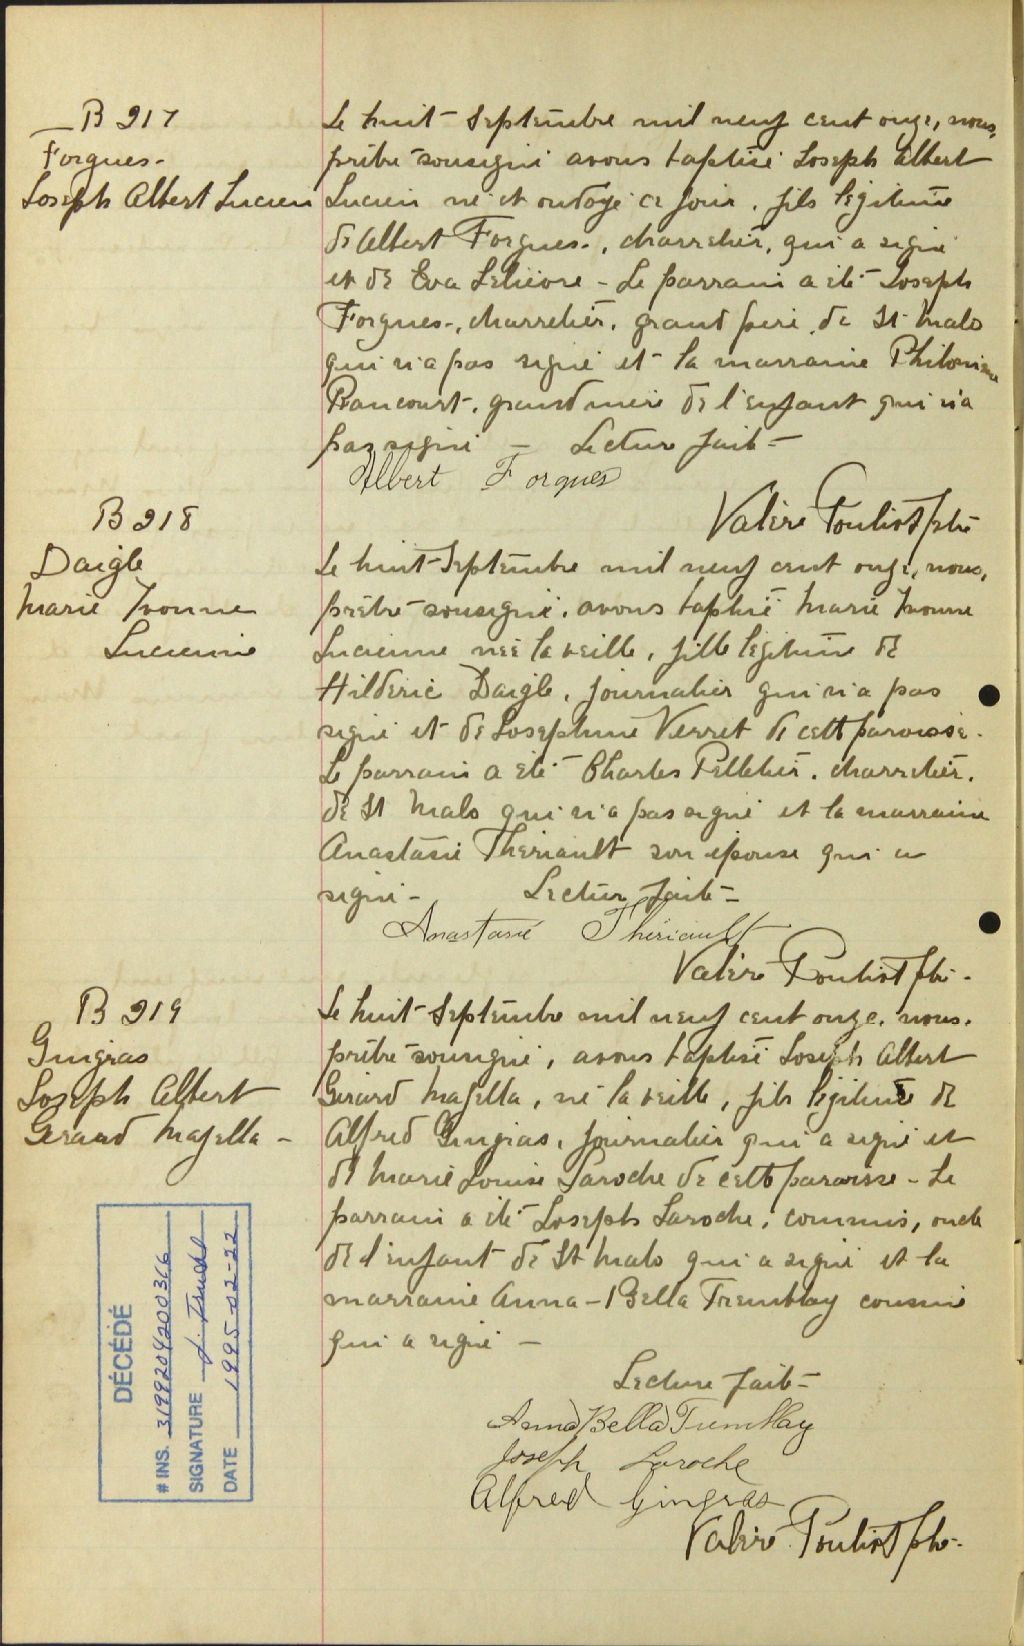 B 217
Forgues.
Joseph Albert Lucien
Le huit Septembre mil neuf cent onze, nous,
prêtre soussigné avons baptisé Joseph Albert
Lucien né et ondoyé ce jour, fils légitime
de Albert Forgues, charretier, qui a signé
et de Eva Lelièvre - Le parrain a été Joseph
Forgues, charretier, grand père, de St Malo
qui n'a pas signé et la marraine Philomène
Rancourt, grand mère de l'enfant qui n'a
pas signé - Lecture faite -
Albert Forgues
Valère Pouliot ptre
B 218
Daigle
Marie Yvonne
Lucienne
Le huit Septembre mil neuf cent onze, nous,
prêtre soussigné, avons baptisé Marie Yvonne
Lucienne née la veille, fille légitime de
Hilderic Daigle, journalier qui n'a pas
signé et de Josephine Verret de cette paroisse.
Le parrain a été Charles Pelletier, charretier,
de St Malo qui n'a pas signé et la marraine
Anastasie Theriault son épouse qui a
signé - Lecture faite -
Anastasie Thériault
Valère Pouliot ptre.
B 219
Gingras
Joseph Albert
Gerard Majella -
Le huit Septembre mil neuf cent onze, nous,
prêtre soussigné, avons baptisé Joseph Albert
Gérard Majella, né la veille, fils légitime de
Alfred Gingras, journalier qui a signé et
de Marie Louise Laroche de cette paroisse - Le
parrain a été Joseph Laroche, commis, oncle
de l'enfant de St Malo qui a signé et la
marraine Anna-Bella Tremblay cousine
qui a signé -
Lecture faite -
Anna Bella Tremblay
Joseph Laroche
Alfred Gingras
Valère Pouliot ptre.
DÉCÉDÉ
# INS. 3199204200366
SIGNATURE
DATE 1995-02-22